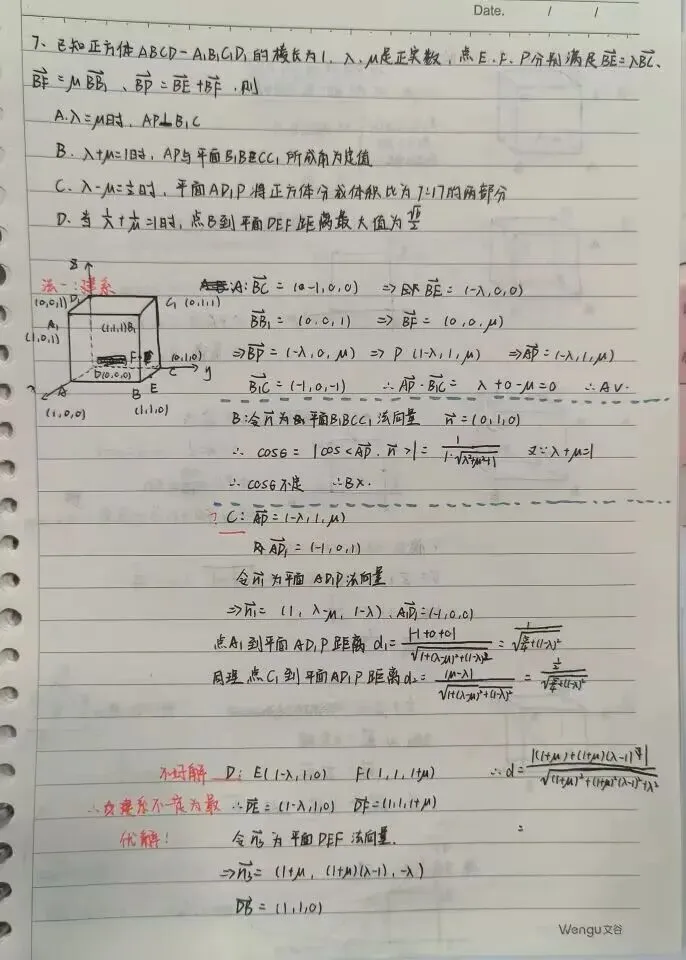 Date. / /
7、已知正方体ABCD-A₁B₁C₁D₁的棱长为1, λ、μ是正实数, 点E、F、P分别满足BE=λBC、
BF=μBB₁、BP=BE+BF, 则
A.λ=μ时, AP⊥B₁C
B. λ+μ=1时, AP与平面B₁BCC₁所成角为定值
C. λ-μ=½时, 平面AD₁P将正方体分成体积比为7:17的两部分
D. 当1/λ+1/μ=1时, 点B到平面DEF距离最大值为
法一:建系
z
(0,0,1) D₁
C₁ (0,1,1)
A₁ (1,1,1)B₁
(1,0,1)
F
D(0,0,0) (0,1,0)
C y
A B E
(1,0,0) (1,1,0)
A: BC=(-1,0,0) ⇒ BE=(-λ,0,0)
BB₁=(0,0,1) ⇒ BF=(0,0,μ)
⇒BP=(-λ,0,μ) ⇒ P(1-λ,1,μ) ⇒AP=(-λ,1,μ)
B₁C=(-1,0,-1) ∴AP·B₁C= λ+0-μ=0 ∴A√.
B:令n为平面B₁BCC₁法向量 n=(0,1,0)
∴ cosθ=|cos<AP·n>|=1/|1·√λ²+μ²+1| 又∵λ+μ=1
∴cosθ不定 ∴B×.
? C: AP=(-λ,1,μ)
AD₁=(-1,0,1)
令n₁为平面AD₁P法向量
⇒n₁=(1, λ-μ, 1-λ) A₁D₁=(-1,0,0)
点A₁到平面AD₁P距离d₁=|-1+0+0|/√1+(λ-μ)²+(1-λ)²=1/√5/4+(1-λ)²
同理点C₁到平面AD₁P距离d₂=|μ-λ|/√1+(λ-μ)²+(1-λ)²=½/√5/4+(1-λ)²
不好解 D: E(1-λ,1,0) F(1,1,1+μ) ∴d=
∴建系不一定为最 ∴DE=(1-λ,1,0) DF=(1,1,1+μ)
优解! 令n₃为平面DEF法向量. =
⇒n₃=(1+μ, (1+μ)(λ-1), -λ)
DB=(1,1,0)
Wengu文谷